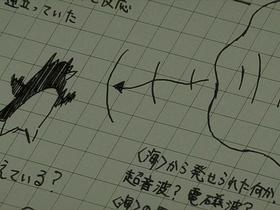 と反応
立っていた
えている?
〈海〉から発せられた何か
超音波? 電磁波?
〈海〉の